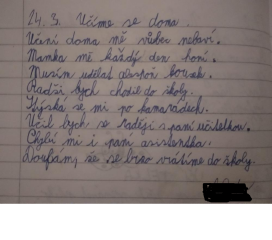 24.3. Učíme se doma.
Učení doma mě vůbec nebaví.
Mamka mě každý den honí.
Musím udělat aspoň kousek.
Radši bych chodil do školy.
Stýská se mi po kamarádech.
Učil bych se raději s paní učitelkou.
Chybí mi i pani asistentka.
Doufám, že se brzo vrátíme do školy.